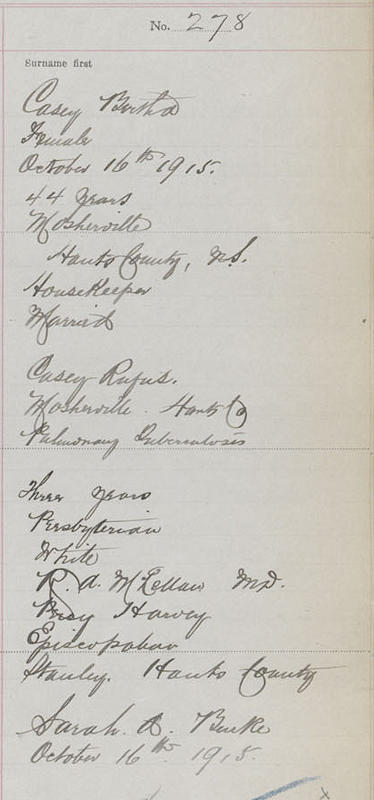 No. 278
Surname first
Casey Bertha
Female
October 16th 1915.
44 years
Mosherville
Hants County, N.S.
HouseKeeper
Married
Casey Rufus.
Mosherville. Hants Co
Pulmonary Tuberculosis
Three years
Presbyterian
White
R. A. McLellan MD.
Percy Harvey
Episcopalian
Stanley. Hants County
Sarah. A. Burke
October 16th 1915.